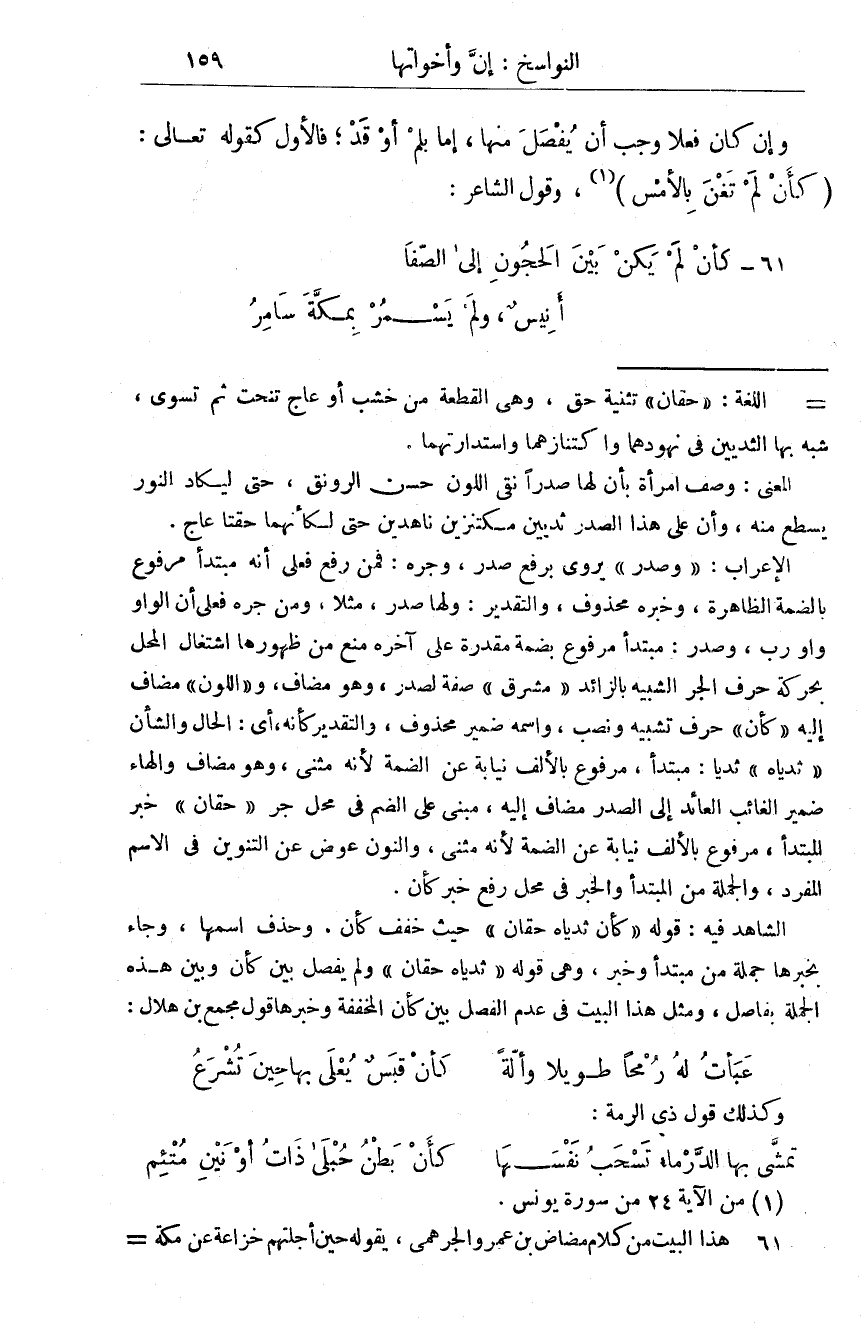 النواسخ : إنَّ وأخواتها ١٥٩
وإن كان فعلا وجب أن يُفْصَلَ منها ، إما بلمْ أوْ قَدْ ؛ فالأول كقوله تعـالى :
( كَأَنْ لَمْ تَغْنَ بِالأمْسِ )(١) ، وقول الشاعر :
٦١ – كأنْ لَمْ يَكنْ بَيْنَ الَحجُونِ إلىٰ الصّفَا
أَنِيسٌ ، ولَمْ يَسْـــمُرْ بِمـكَّةَ سَامِرُ
= اللغة : «حقان» تثنية حق ، وهى القطعة من خشب أو عاج تنحت ثم تسوى ،
شبه بها الثديين فى نهودهما واكتنازهما واستدارتهما .
المعنى : وصف امرأة بأن لها صدراً نقى اللون حسن الرونق ، حتى ليكاد النور
يسطع منه ، وأن على هذا الصدر ثديين مكتنزين ناهدين حتى لكأنهما حقتا عاج .
الإعراب : « وصدر » يروى برفع صدر ، وجره : فمن رفع فعلى أنه مبتدأ مرفوع
بالضمة الظاهرة ، وخبره محذوف ، والتقدير : ولها صدر ، مثلا ، ومن جره فعلى أن الواو
واو رب ، وصدر : مبتدأ مرفوع بضمة مقدرة على آخره منع من ظهورها اشتغال المحل
بحركة حرف الجر الشبيه بالزائد « مشرق » صفة لصدر ، وهو مضاف، و«اللون» مضاف
إليه «كأن» حرف تشبيه ونصب ، واسمه ضمير محذوف ، والتقدير كأنه، أى : الحال والشأن
« ثدياه » ثديا : مبتدأ ، مرفوع بالألف نيابة عن الضمة لأنه مثنى ، وهو مضاف والهاء
ضمير الغائب العائد إلى الصدر مضاف إليه ، مبنى على الضم فى محل جر « حقان » خبر
المبتدأ ، مرفوع بالألف نيابة عن الضمة لأنه مثنى ، والنون عوض عن التنوين فى الاسم
المفرد ، والجملة من المبتدأ والخبر فى محل رفع خبر كأن .
الشاهد فيه : قوله «كأن ثدياه حقان » حيث خفف كأن . وحذف اسمها ، وجاء
بخبرها جملة من مبتدأ وخبر ، وهى قوله « ثدياه حقان » ولم يفصل بين كأن وبين هـذه
الجملة بفاصل ، ومثل هذا البيت فى عدم الفصل بين كأن المخففة وخبرها قول مجمع بن هلال :
عَبَأتُ لهُ رُمْحًا طـويلا وألّةً كَأنْ قَبَسٌ يُعْلَى بها حِينَ تُشْرَعُ
وكذلك قول ذى الرمة :
تمشَّى بها الدَّرْماء تَسْحَبُ نَفْسَـــهَا كَأَنْ بَطْنُ حُبْلَىٰ ذَاتُ أوْنَيْنِ مُتْئِمِ
(١) من الآية ٢٤ من سورة يونس .
٦١ هذا البيت من كلام مضاض بن عمرو الجرهمى ، يقوله حين أجلتهم خزاعة عن مكة =